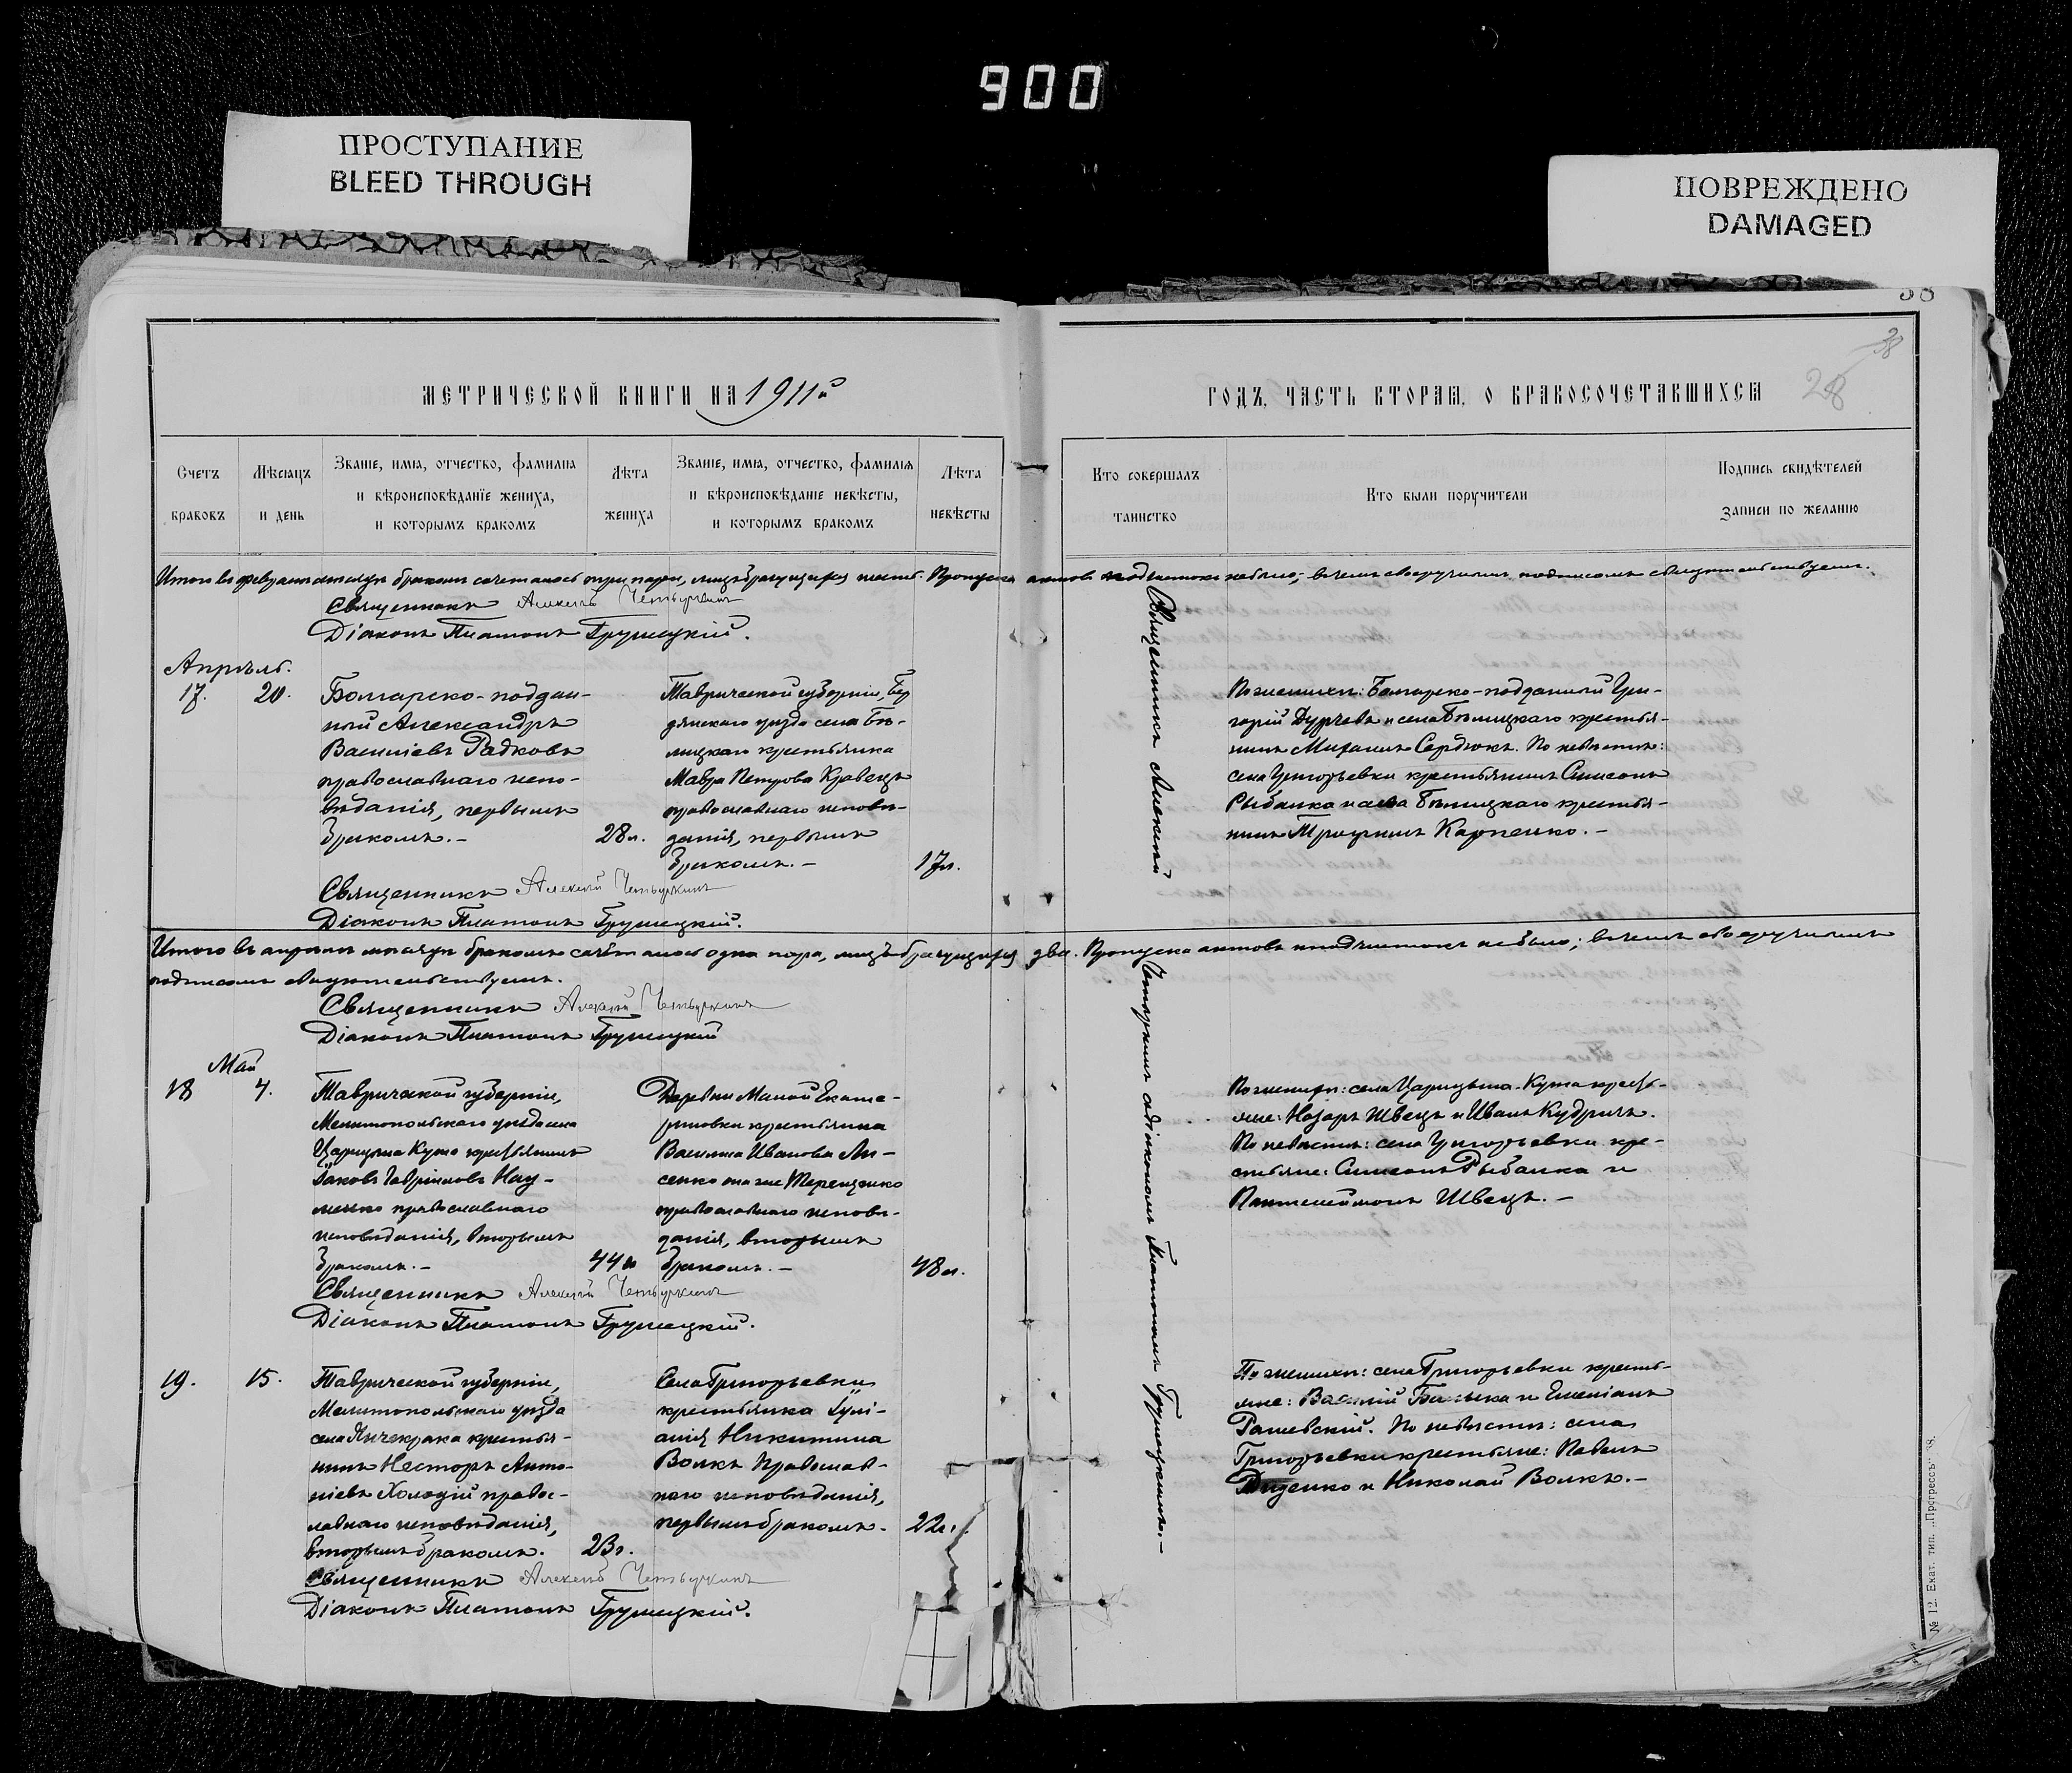 900
ПРОСТУПАНИЕ
BLEED THROUGH
ПОВРЕЖДЕНО
DAMAGED
38
28
МЕТРИЧЕСКОЙ КНИГИ НА 1911й
ГОДЪ, ЧАСТЬ ВТОРАЯ, О БРАКОСОЧЕТАВШИХСЯ
Счетъ браковъ
Мѣсяцъ и день
Званіе, имя, отчество, фамилія и вѣроисповѣданіе жениха, и которымъ бракомъ
Лѣта жениха
Званіе, имя, отчество, фамилія и вѣроисповѣданіе невѣсты, и которымъ бракомъ
Лѣта невѣсты
Кто совершалъ таинство
Кто были поручители
Подпись свидѣтелей записи по желанію
Итого въ февралѣ мѣсяцѣ бракомъ сочеталось три пары, лицъ брачущихся шесть. Пропуска актовъ и подчистокъ не было; въ чемъ своеручнымъ подписомъ свидѣтельствуемъ.
Священникъ Алексѣй Четыркинъ
Діаконъ Платонъ Грушецкій.
Апрѣль.
17. 20.
Болгарско-поддан-
ный Александръ
Василіевъ Радковъ
православнаго испо-
вѣданія, первымъ
бракомъ.-
28 л.
Таврической губерніи, Бер
дянскаго уѣзда села Бѣ-
лицкаго крестьянка
Мавра Петрова Кравецъ
православнаго исповѣ-
данія, первымъ
бракомъ.-
17 л.
По женихѣ: Болгарско-подданный Гри-
горій Дурчевъ и села Бѣлицкаго крестья-
нинъ Михаилъ Сердюкъ. По невѣстѣ:
села Григорьевки крестьянинъ Симеонъ
Рыбалка и села Бѣлицкаго крестья-
нинъ Трифонъ Карпенко.-
Священникъ Алексѣй Четыркинъ
Діаконъ Платонъ Грушецкій.
Итого въ апрѣлѣ мѣсяцѣ бракомъ сочеталась одна пара, лицъ брачущихся два. Пропуска актовъ и подчистокъ не было; въ чемъ своеручнымъ
подписомъ свидѣтельствуемъ.
Священникъ Алексѣй Четыркинъ
Діаконъ Платонъ Грушецкій
Май
18 4.
Таврической губерніи,
Мелитопольскаго уѣзда села
Царицына Кута крестьянинъ
Іаковъ Гавріиловъ Нау-
менко православнаго
исповѣданія, вторымъ
бракомъ.-
44 л.
Деревни Малой Екате-
риновки крестьянка
Василиса Иванова Ли-
сенко она же Терещенко
православнаго исповѣ-
данія, вторымъ
бракомъ.-
48 л.
По женихѣ: села Царицына-Кута кресть-
яне: Назаръ Швецъ и Иванъ Кудричъ.
По невѣстѣ: села Григорьевки кре-
стьяне: Симеонъ Рыбалка и
Пантелеймонъ Швецъ.-
Священникъ Алексѣй Четыркинъ
Діаконъ Платонъ Грушецкій.
19. 15.
Таврической губерніи,
Мелитопольскаго уѣзда
села Янчекрака крестья-
нинъ Несторъ Анто-
ніевъ Холодій правос-
лавнаго исповѣданія,
вторымъ бракомъ.
23 г.
Села Григорьевки
крестьянка Іулі-
анія Никитина
Волкъ православ-
наго исповѣданія,
первымъ бракомъ.
22 г.
По женихѣ: села Григорьевки кресть-
яне: Василій и Емеліанъ
Рашевскій. По невѣстѣ: села
Григорьевки крестьяне: Павелъ
Диденко и Николай Волкъ.-
Священникъ Алексѣй Четыркинъ
Діаконъ Платонъ Грушецкій.
Священникъ Алексѣй Четыркинъ съ діакономъ Платономъ Грушецкимъ.-
№ 12. Екат. тип. „Прогрессъ“